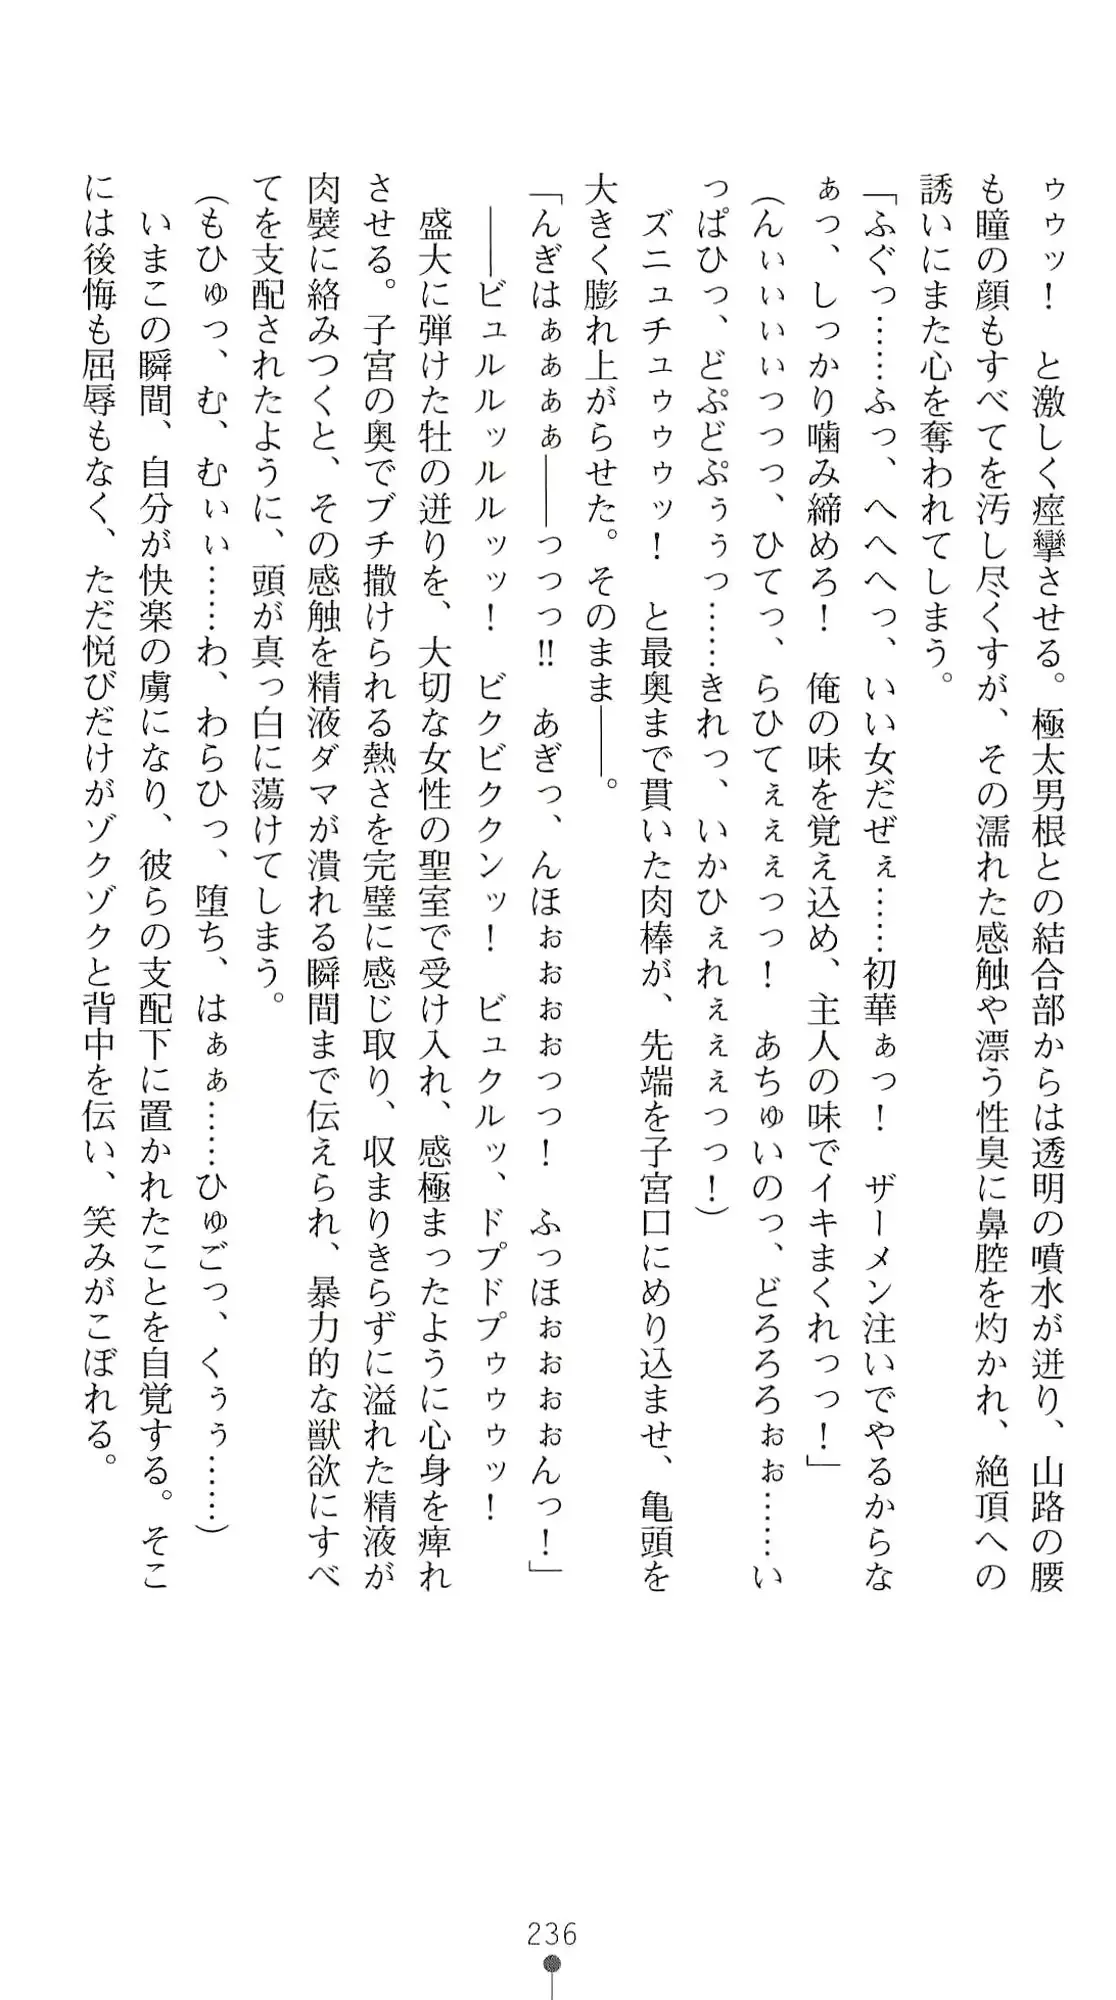 ゥゥッ！　と激しく痙攣させる。極太男根との結合部からは透明の噴水が迸り、山路の腰
も瞳の顔もすべてを汚し尽くすが、その濡れた感触や漂う性臭に鼻腔を灼かれ、絶頂への
誘いにまた心を奪われてしまう。
「ふぐっ……ふっ、へへへっ、いい女だぜぇ……初華ぁっ！　ザーメン注いでやるからな
ぁっ、しっかり噛み締めろ！　俺の味を覚え込め、主人の味でイキまくれっっ！」
（んぃぃぃぃっっっ、ひてっ、らひてぇぇぇっっ！　あちゅいのっ、どろろろぉぉ……い
っぱひっ、どぷどぷぅぅっ……きれっ、いかひぇれぇぇぇっっ！）
　ズニュチュゥゥゥッ！　と最奥まで貫いた肉棒が、先端を子宮口にめり込ませ、亀頭を
大きく膨れ上がらせた。そのまま――。
「んぎはぁぁぁぁ――っっっ!!　あぎっ、んほぉぉぉぉっっ！　ふっほぉぉぉぉんっ！」
　――ビュルルルッルルッッ！　ビクビククンッ！　ビュクルッ、ドプドプゥゥゥッ！
　盛大に弾けた牡の迸りを、大切な女性の聖室で受け入れ、感極まったように心身を痺れ
させる。子宮の奥でブチ撒けられる熱さを完璧に感じ取り、収まりきらずに溢れた精液が
肉襞に絡みつくと、その感触を精液ダマが潰れる瞬間まで伝えられ、暴力的な獣欲にすべ
てを支配されたように、頭が真っ白に蕩けてしまう。
（もひゅっ、む、むぃぃ……わ、わらひっ、堕ち、はぁぁ……ひゅごっ、くぅぅ……）
　いまこの瞬間、自分が快楽の虜になり、彼らの支配下に置かれたことを自覚する。そこ
には後悔も屈辱もなく、ただ悦びだけがゾクゾクと背中を伝い、笑みがこぼれる。
236